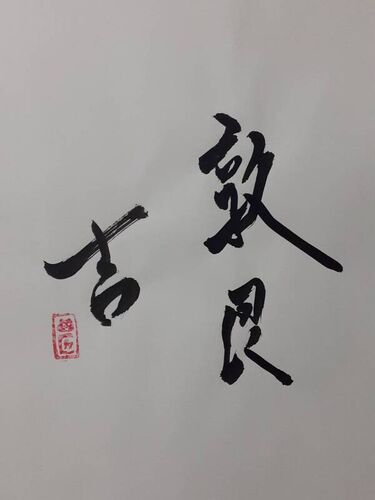 敦艮
吉